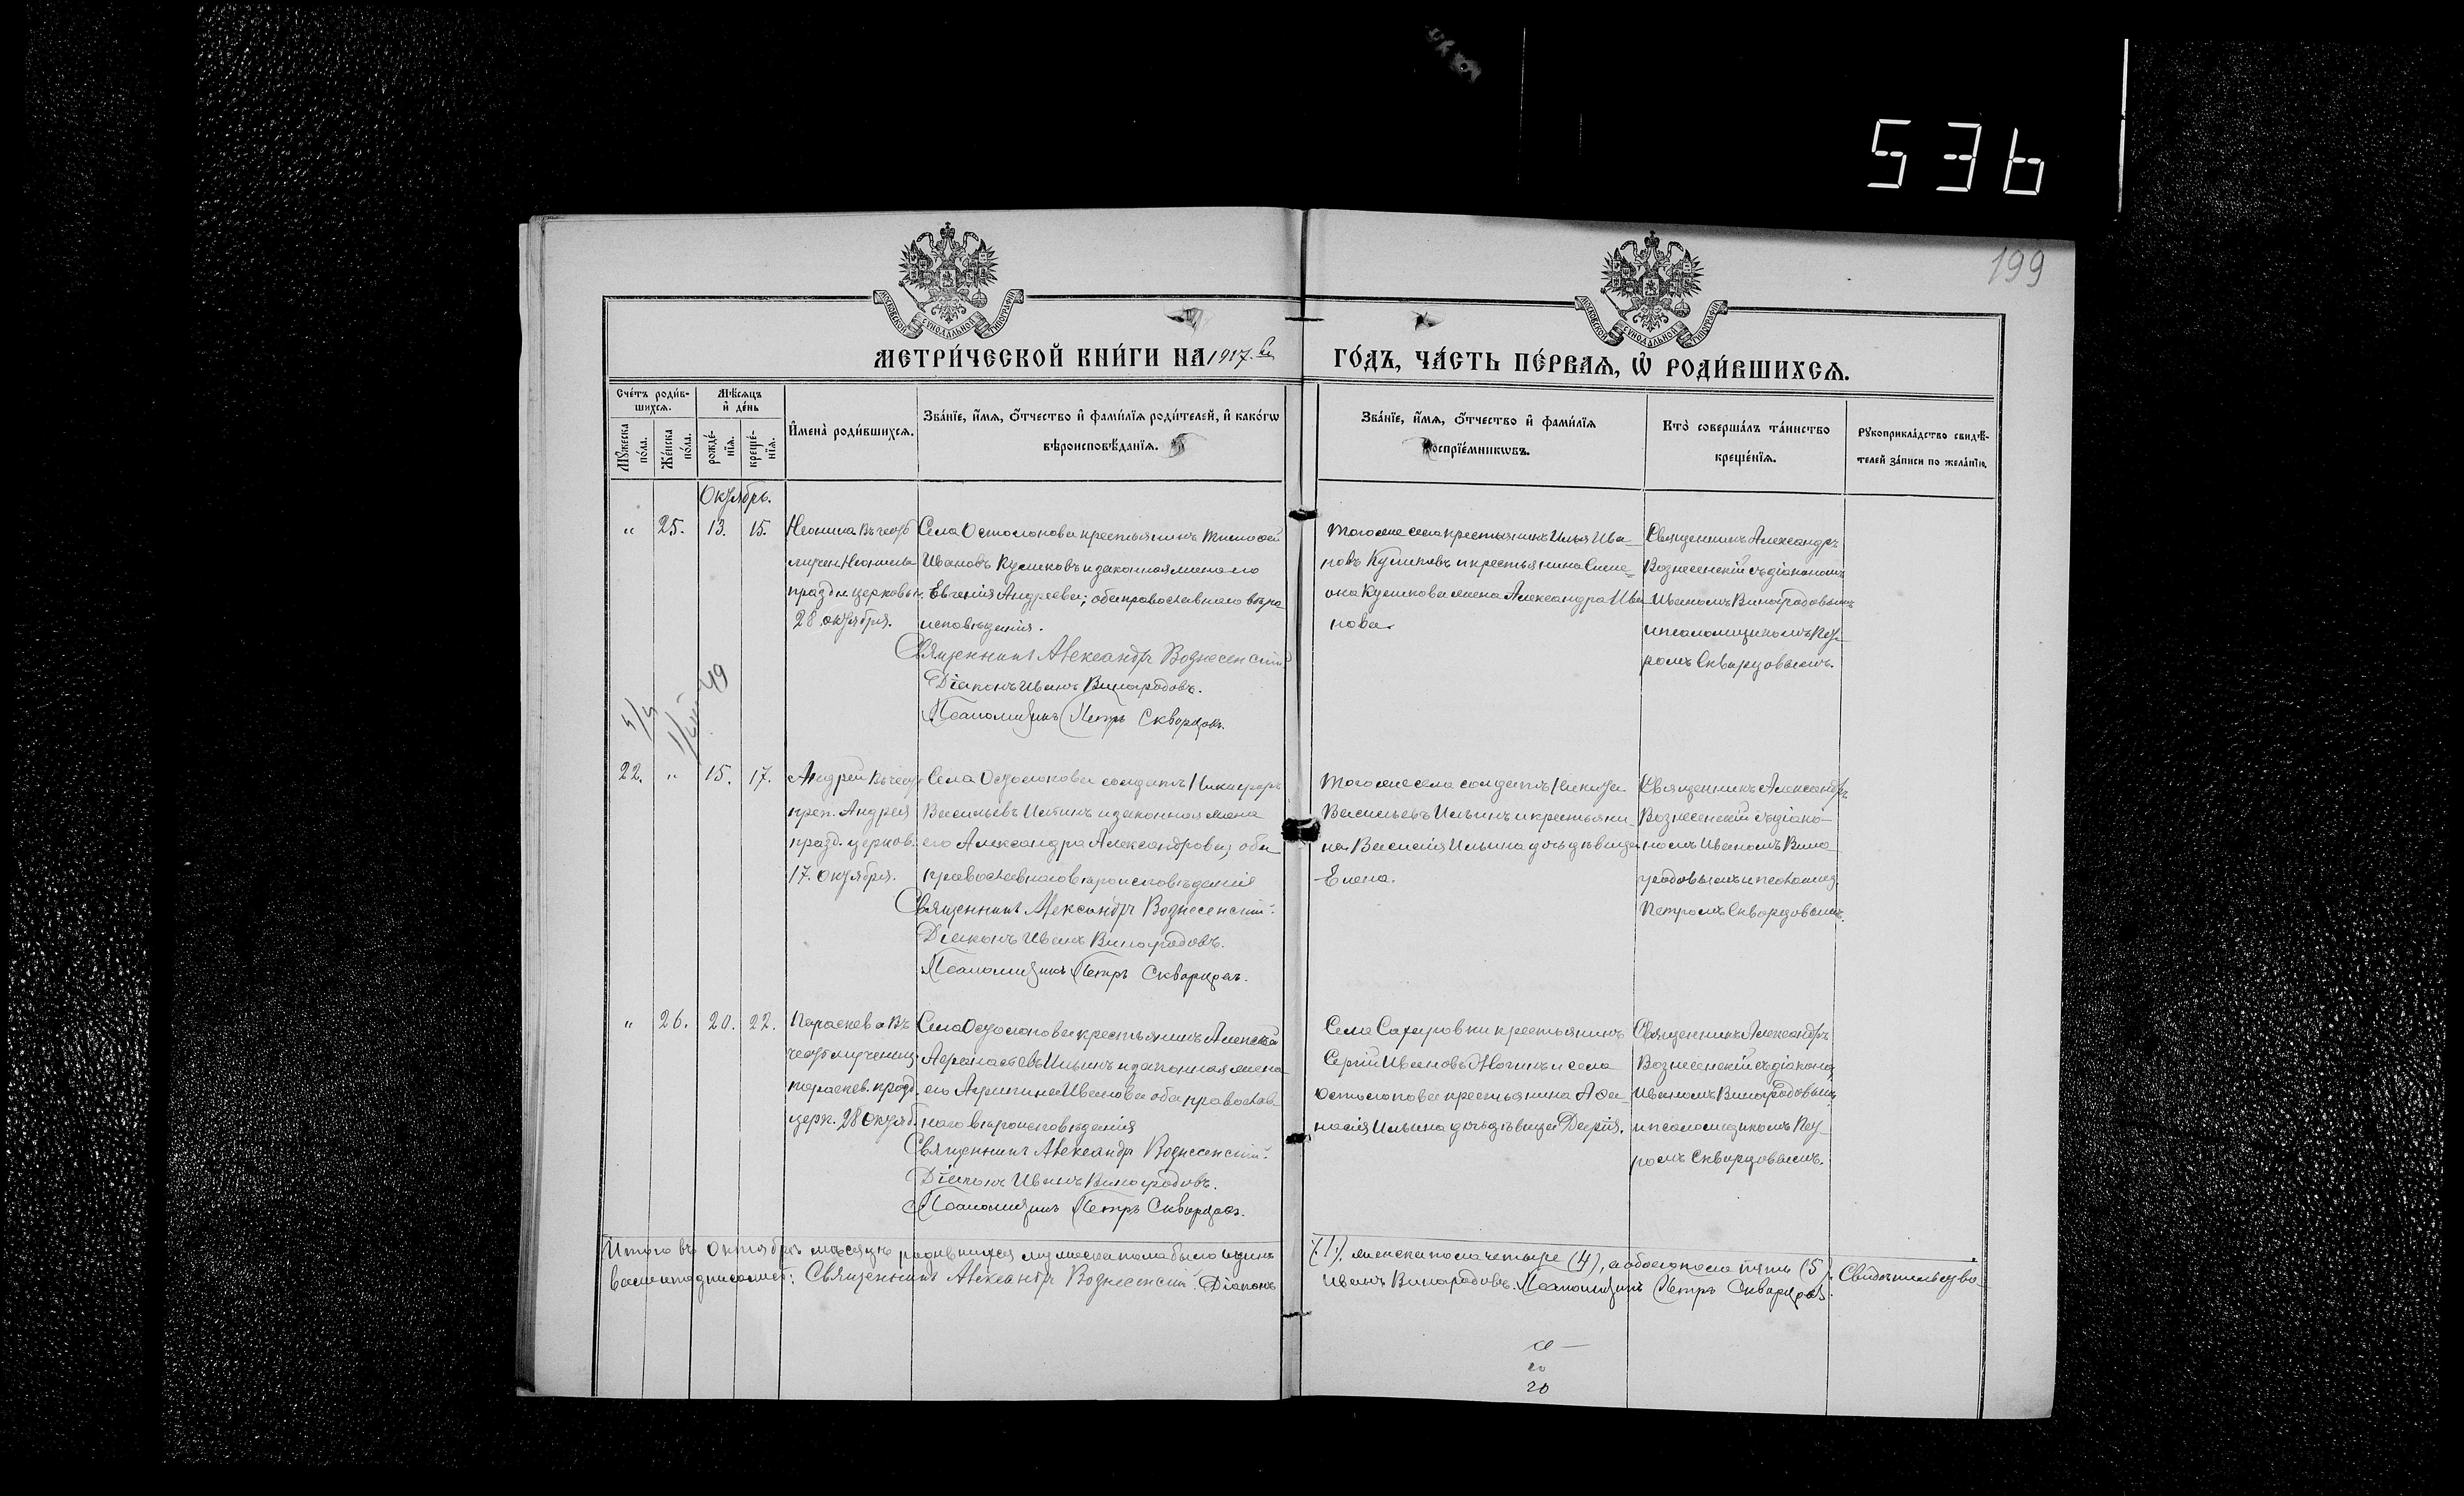 536
199
МОСКОВСКОЙ СѴНОДАЛЬНОЙ ТИПОГРАФІИ
МОСКОВСКОЙ СѴНОДАЛЬНОЙ ТИПОГРАФІИ
МЕТРИ́ЧЕСКОЙ КНИ́ГИ НА 1917.й ГО́ДЪ, ЧА́СТЬ ПЕ́РВАѦ, Ѿ РОДИ́ВШИХСѦ.
Сче́тъ роди́в-
шихсѧ.
Мꙋ́жеска
по́ла.
Же́нска
по́ла.
Мѣ́сѧцъ
и҆ де́нь
рожде́-
нїѧ.
креще́-
нїѧ.
И҆мена̀ роди́вшихсѧ.
Зва́нїе, и҆́мѧ, ѻ҆́тчество и҆ фами́лїѧ роди́телей, и҆ како́гѡ
вѣроисповѣ́данїѧ.
Зва́нїе, и҆́мѧ, ѻ҆́тчество и҆ фами́лїѧ
воспрїе́мникѡвъ.
Кто̀ соверша́лъ та́инство
креще́нїѧ.
Рꙋкоприкла́дство свидѣ́-
телей за́писи по жела́нїю.
Октябрь.
" 25. 13. 15.
Неонила Въ честь
мучен. Неонилы
праздн. церковью
28 октября.
Села Остолопова крестьянинъ Тимофей
Ивановъ Куликовъ и законная жена его
Евгенія Андреева; оба православнаго вѣро
исповѣданія.
Священникъ Александръ Вознесенскій
Діаконъ Иванъ Виноградовъ.
Псаломщикъ Петръ Скворцовъ.
Того же села крестьянинъ Илья Ива-
новъ Куликовъ и крестьянина Симе-
она Куликова жена Александра Ива-
нова.
Священникъ Александръ
Вознесенскій съ діакономъ
Иваномъ Виноградовымъ
и псаломщикомъ Пет-
ромъ Скворцовымъ.
22. " 15. 17.
Андрей Въ честь
преп. Андрея
празд. церков.
17. Октября.
Села Остолопова солдатъ Никифоръ
Васильевъ Ильинъ и законная жена
его Александра Александрова, оба
православнаго вѣроисповѣданія
Священникъ Александръ Вознесенскій.
Діаконъ Иванъ Виноградовъ.
Псаломщикъ Петръ Скворцовъ.
Того же села солдатъ Никита
Васильевъ Ильинъ и крестьяни-
на Василія Ильина дочь дѣвица
Елена.
Священникъ Александръ
Вознесенскій съ діако-
номъ Иваномъ Вино
градовымъ и псаломщ.
Петромъ Скворцовымъ.
" 26. 20. 22.
Параскева Въ
честь мучениц.
параскев. празд.
церк. 28 Октяб.
Села Остолопова крестьянинъ Алексѣй
Афанасьевъ Ильинъ и законная жена
его Агрипина Иванова оба православ
наго вѣроисповѣданія
Священникъ Александръ Вознесенскій.
Діаконъ Иванъ Виноградовъ.
Псаломщикъ Петръ Скворцовъ.
Села крестьянинъ
Сергій Ивановъ и села
Остолопова крестьянина Афа-
насія Ильина дочь дѣвица Дарія.
Священникъ Александръ
Вознесенскій съ діакономъ
Иваномъ Виноградовымъ
и псаломщикомъ Пет-
ромъ Скворцовымъ.
Итого въ Октябрѣ мѣсяцѣ родившихся мужеска пола было одинъ (1), женска пола четыре (4), а обоего пола пять (5). Свидѣтельство-
вали и подписомъ: Священникъ Александръ Вознесенскій. Діаконъ Иванъ Виноградовъ. Псаломщикъ Петръ Скворцовъ.
20
20